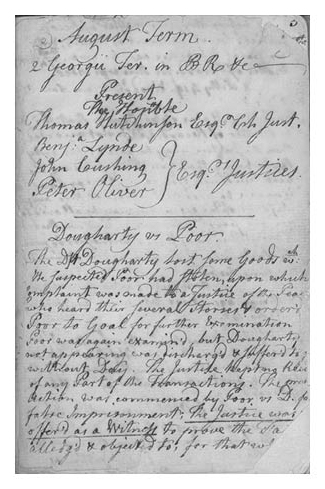 August Term
2 Georgii Ter. in BR &c
Present
The Honble
Thomas Hutchinson Esqr. Ch. Just.
Benja. Lynde
John Cushing
Peter Oliver
Esqrs. Justices.
Dougharty vs Poor.
The Dft Dougharty lost some Goods wch
he suspected Poor had stolen, upon which
Complaint was made to a Justice of the Pea-
who heard their several Stories & order'd
Poor to Goal for further Examination
Poor was again examin'd, but Dougharty
not appearing was discharg'd & suffer'd to
without Day. The Justice keeping
of any Part of the Transactions. The
Action was commenced by Poor vs D. for
false Imprisonment; The Justice was
offer'd as a Witness to prove the
alledg'd & objected to; for that